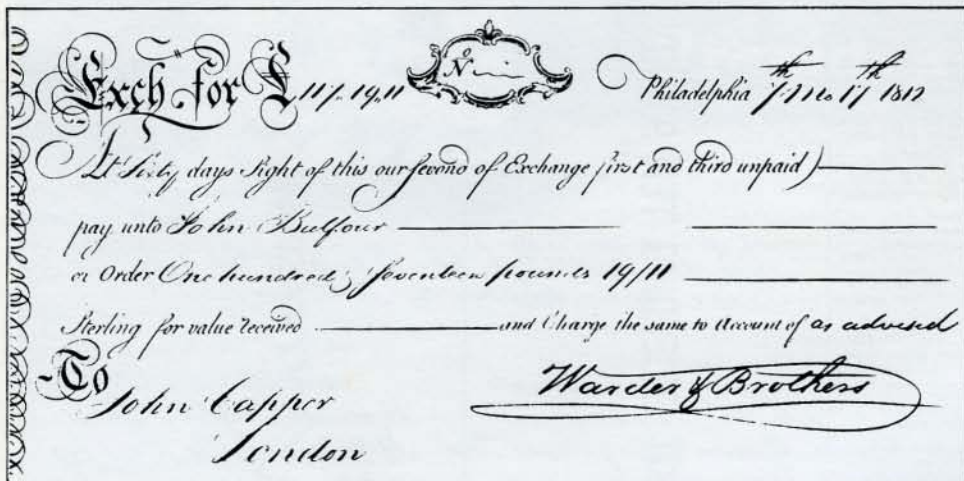 Exch for £ 117. 19. 11 No Philadelphia 7th Mo 17th 1812
At Sixty days Sight of this our Second of Exchange first and third unpaid)
pay unto John Bulfour
or Order One hundred & Seventeen pounds 19/11
Sterling for value Received and Charge the same to Account of as advised
To
John Capper
London
Warder & Brothers